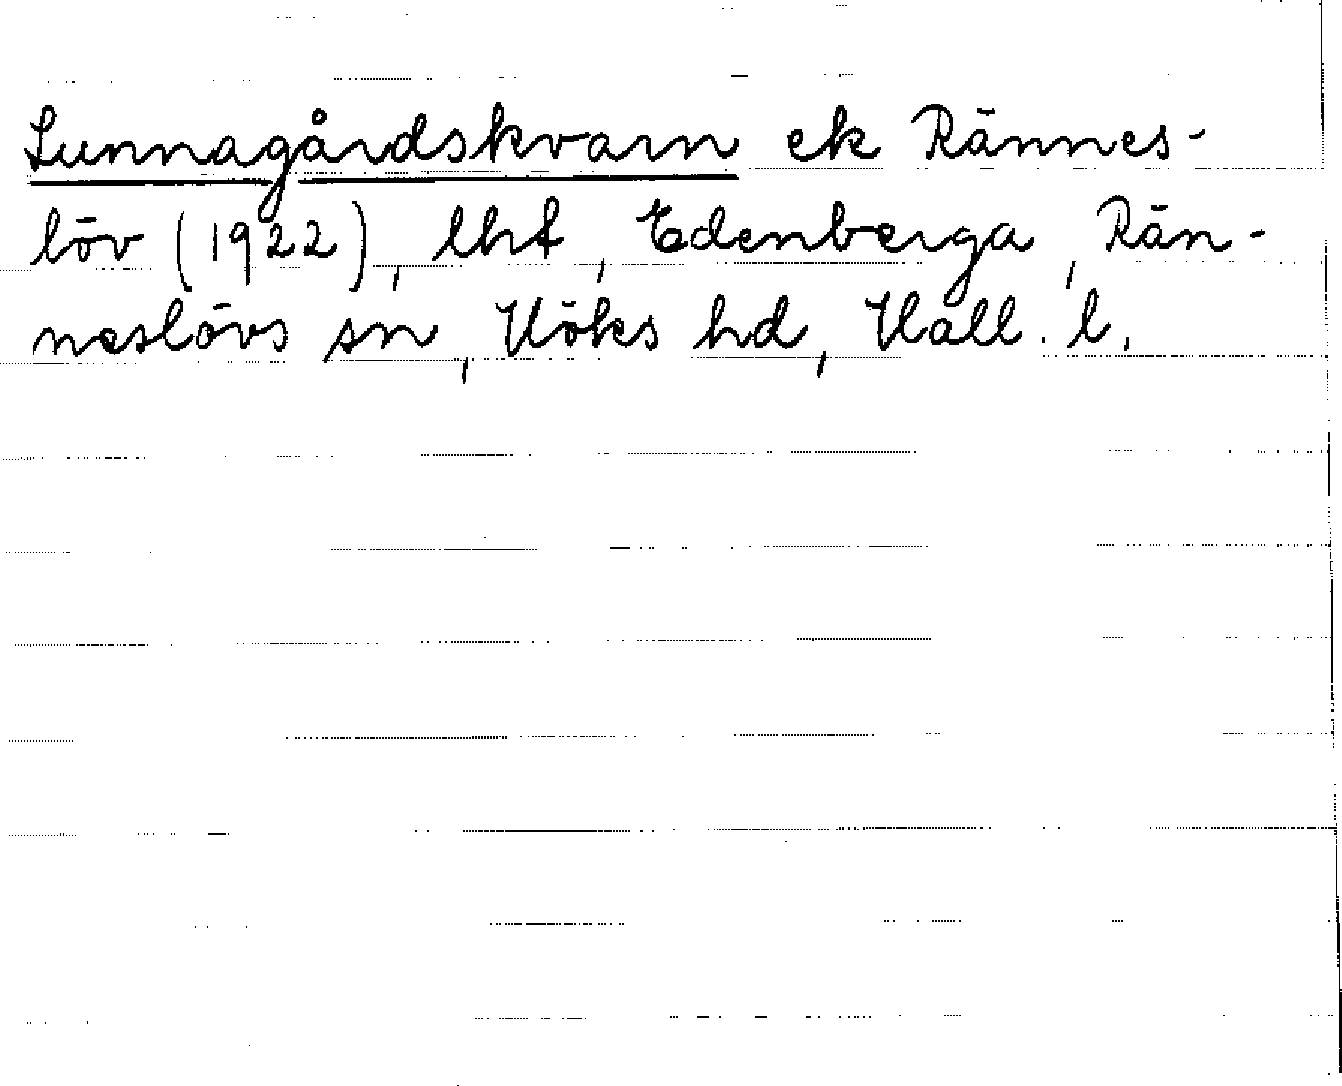 Lunnagårdskvarn ek Rännes-
löv (1922), lht, Edenberga, Rän-
neslövs sn, Höks hd, Hall. l.